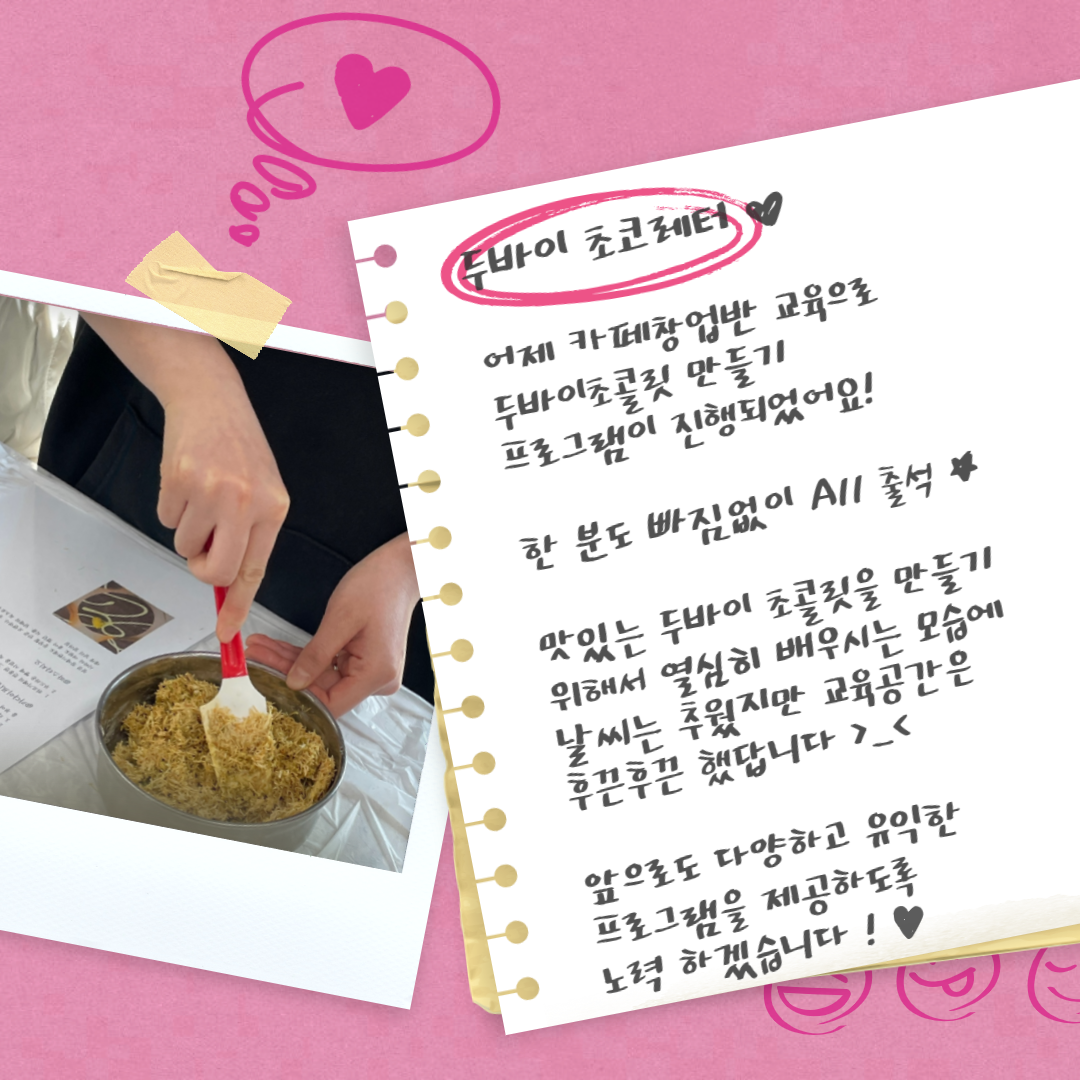 두바이 초코레터
어제 카페창업반 교육으로
두바이초콜릿 만들기
프로그램이 진행되었어요!
한 분도 빠짐없이 All 출석
맛있는 두바이 초콜릿을 만들기
위해서 열심히 배우시는 모습에
날씨는 추웠지만 교육공간은
후끈후끈 했답니다 >_<
앞으로도 다양하고 유익한
프로그램을 제공하도록
노력 하겠습니다 !